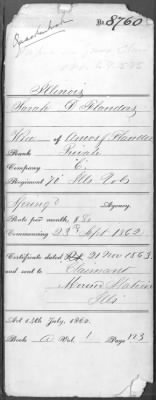 No. 8760
Illinois
Sarah D Flanders
of Amos J Flanders
Rank Private
Company E.
Regiment 70 Ills Vols
Agency.
Rate per month, $8
Commencing 23d Sept 1862
Certificate dated 21 Nov 1863
and sent to Claimant
Marine Station
Ills
Act 14th July, 1862.
Book A Vol. 1 Page 123